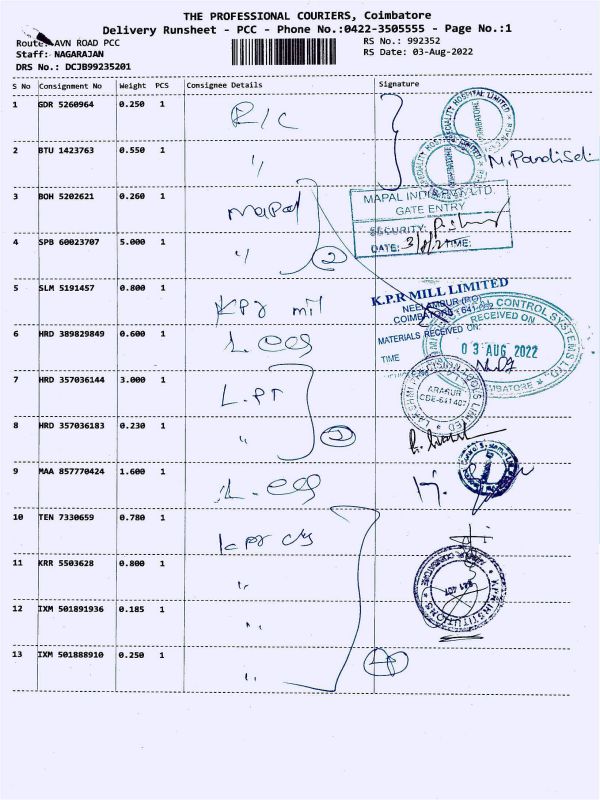 THE PROFESSIONAL COURIERS, Coimbatore
Delivery Runsheet - PCC - Phone No.:0422-3505555 - Page No.:1
Route: AVN ROAD PCC
RS No.: 992352
Staff: NAGARAJAN
RS Date: 03-Aug-2022
DRS No.: DCJB99235201
S No Consignment No Weight PCS Consignee Details Signature
1 GDR 5260964 0.250 1 R/C
2 BTU 1423763 0.550 1 "
3 BOH 5202621 0.260 1 Mapal
MAPAL INDIA PVT. LTD.
GATE ENTRY
SECURITY:
DATE: TIME:
4 SPB 60023707 5.000 1 "
2
5 SLM 5191457 0.800 1 KPR mil
K.P.R MILL LIMITED
NEELAMBUR (PO)
COIMBATORE - 641
MATERIALS RECEIVED ON:
TIME
CONTROL SYSTEMS
RECEIVED ON
03 AUG 2022
COIMBATORE
6 HRD 389829849 0.600 1
7 HRD 357036144 3.000 1 L.PT
LAKSHMI PRECISION TOOLS LIMITED
ARASUR
CBE-641407
8 HRD 357036183 0.230 1 "
2
9 MAA 857770424 1.600 1
10 TEN 7330659 0.780 1
11 KRR 5503628 0.800 1 "
KPR INSTITUTIONS
641 407
12 IXM 501891936 0.185 1 "
13 IXM 501888910 0.250 1 "
4